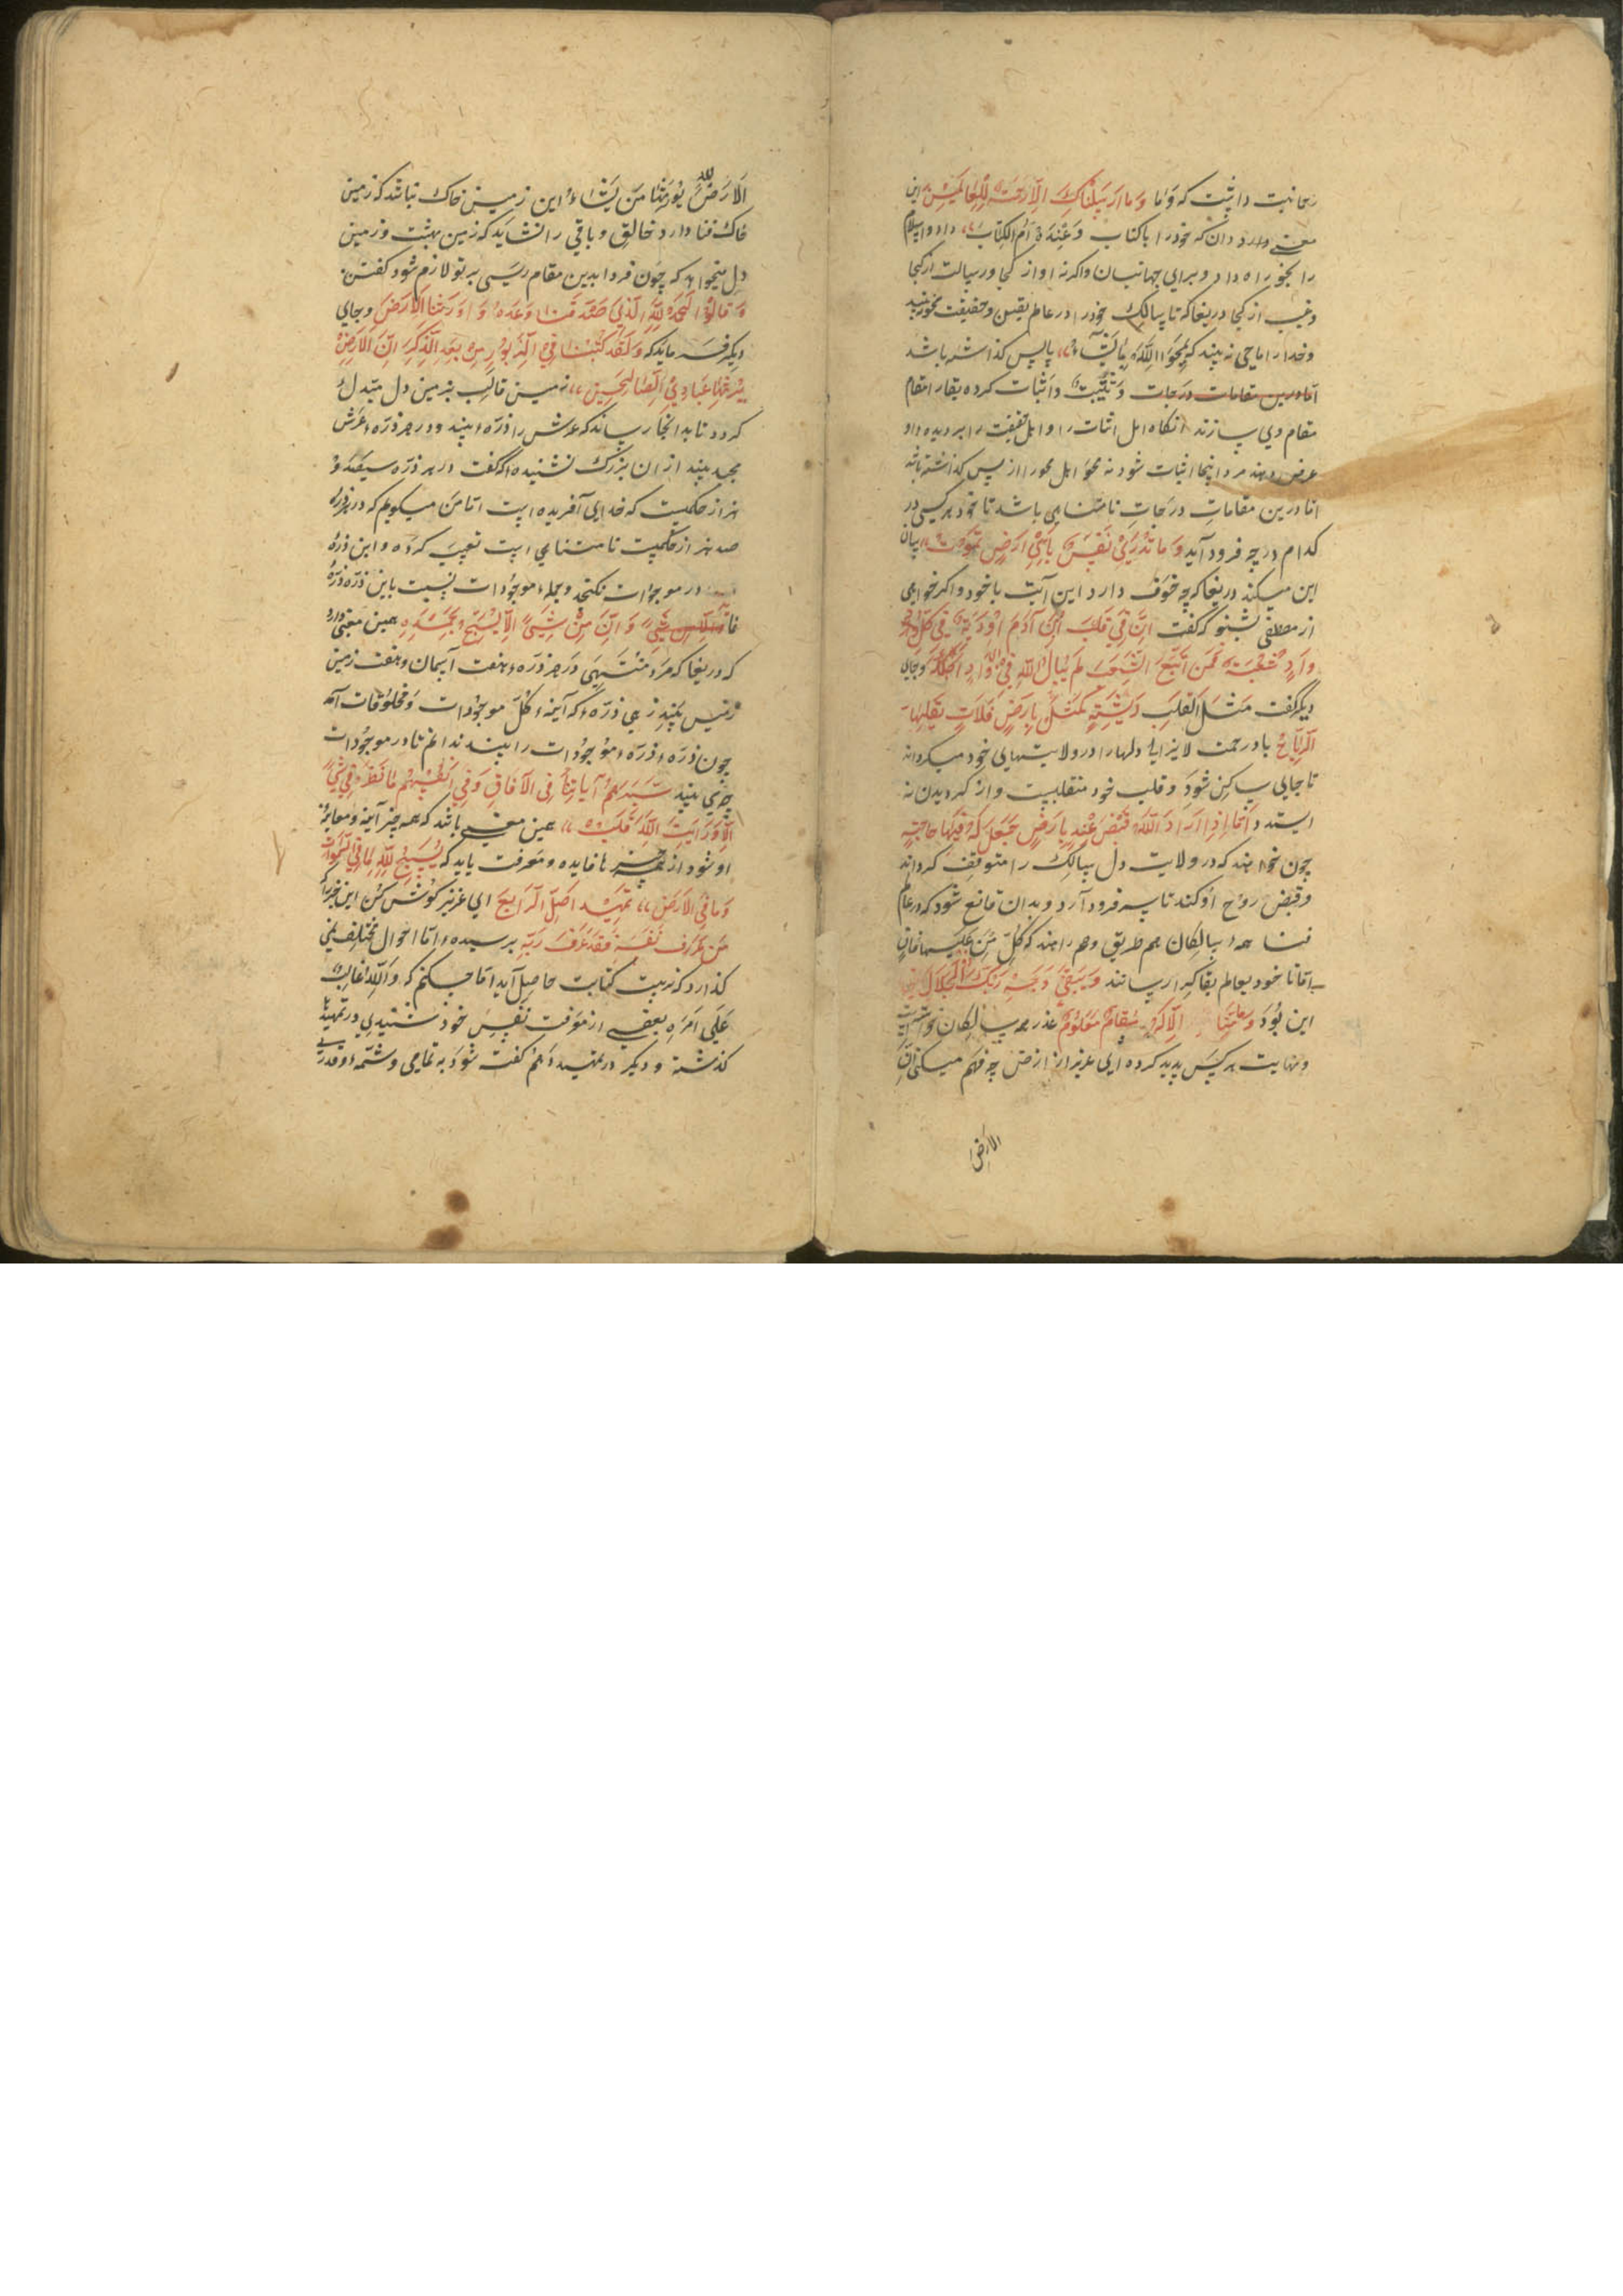 رحمانیت دانست که وَمَا وَمَا اَرسَلنَاكَ اِلَّا رَحمَةً لِلعَالَمِينَ این
معنی دارد دان که خود را با کتاب وَعِندَهُ اُمُّ الکِتَابِ داد و اسلام
را بخود راه داد و برای جهانیان و اگر نه او از کجا و رسالت از کجا
وغیب از کجا دریغا که تا سالک خود را در عالم یقین و حقیقت محو نبیند
وخدا را ماحی نه بیند که یَمحُوا اللّٰهُ مَا یَشَآءُ با پس گذاشته باشد
اما درین مقامات درجات وَیُثبِتُ و اثبات کرده بقا را مقام
مقام وی سازند آنگاه اهل اثبات را و اهل حقیقت را بر دیده او
عرض دهند مرد اینجا اثبات شود نه محو اهل محو را از پس گذاشته باشد
اما درین مقامات درجات نامتناهی باشد تا خود هر کسی در
کدام درجه فرود آید وَمَا تَدرِی نَفسٌ بِاَیِّ اَرضٍ تَمُوتُ بیان
این میکند دریغا که چه خوف دارد این آیت با خود و اگر خواهی
از مصطفی بشنو که گفت اِنَّ فِی قَلبِ ابنِ آدَمَ اَودِیَةً فِی کُلِّ
وَادٍ شُعبَةٌ فَمَن اَتبَعَ الشُّعَبَ لَم یُبَالِ اللّٰهُ فِی اَیِّ وَادٍ اَهلَکَهُ وجای
دیگر گفت مَثَلُ القَلبِ کَرِیشَةٍ بِاَرضٍ فَلَاتٍ تُقَلِّبُهَا
الرِّیَاحُ باد رحمت لایزالی دلها را در ولایتهای خود میگرداند
تا جایی ساکن شود و قلب خود منقلبست و از گردیدن نه
ایستد و اِذَا اَرَادَ اللّٰهُ قَبضَ عَبدٍ بِاَرضٍ جَعَلَ لَهُ فِیهَا حَاجَةً
چون خواهند که در ولایت دل سالک را متوقف گرداند
وقبض روح او کند تا سر فرود آرد و بدان قانع شود که در عالم
فنا همه سالکان هم طریق و همراهند که کُلُّ مَن عَلَیهَا فَانٍ
اما تا خود بعالم بقا کِرا رسانند وَیَبقٰی وَجهُ رَبِّكَ ذُو الجَلَالِ
این بُوَد وَمَا مِنَّا اِلَّا لَهُ مَقَامٌ مَعلُومٌ عذر همه سالکان خواسته است
ونهایت هر کس پدید کرده ای عزیز از ارض چه فهم میکنی اِنَّ
الارض
اَلاَرضَ لِلّٰهِ یُورِثُهَا مَن یَشَاءُ این زمین خاک نباشد که زمین
خاک فنا دارد خالق و باقی را نشاید که زمین بهشت و زمین
دل میخواهد که چون فردا بدین مقام رسی بر تو لازم شود گفتن
وَقَالُوا الحَمدُ لِلّٰهِ الَّذِی صَدَقَنَا وَعدَهُ وَاَورَثَنَا الاَرضَ وجای
دیگر فرماید که وَلَقَد کَتَبنَا فِی الزَّبُورِ مِن بَعدِ الذِّکرِ اَنَّ الاَرضَ
یَرِثُهَا عِبَادِیَ الصَّالِحِینَ زمین قالب بزمین دل مبدل
گردد تا بدانجا رساند که عرش را ذرّه بیند و در هر ذرّه عرش
مجید بیند از آن بزرگ نشنیده که گفت در هر ذرّه سیصد و
هزار حکمیت که خدای آفریده است اما من میگویم که در هر ذره
صد هزار حکمیت نامتناهی است تعبیه کرده و این ذره
در موجودات نگنجد و جمله موجودات نسبت باین ذرّه ذرّه
وَاِن مِن شَیءٍ اِلَّا یُسَبِّحُ بِحَمدِهِ همین معنی دارد
که دریغا که مرد منتهی در هر ذرّه هفت آسمان و هفت زمین
بیند زهی ذرّه که آینه کل موجودات و مخلوقات آمد
چون ذرّه ذرّه موجودات را بیند ندانم تا در موجودات
چه‌ی بیند سَنُرِیهِم آیَاتِنَا فِی الآفَاقِ وَفِی اَنفُسِهِم مَا نَظَرتُ فِی شَیءٍ
اِلَّا وَرَاَیتُ اللّٰهَ فِیهِ همین معنی باشد که همه چیز آینه و معاینه
او شود از همه چیزها فایده و معرفت یابد که یُسَبِّحُ لِلّٰهِ مَا فِی السَّمٰوَاتِ
وَمَا فِی الاَرضِ تمهید اصل الرابع ای عزیز گوش کن این خبر را که
مَن عَرَفَ نَفسَهُ فَقَد عَرَفَ رَبَّهُ پرسیده اما احوال مختلف نمی
گذارد که تربیت کتابت حاصل آید اما چکنم که وَاللّٰهُ غَالِبٌ
عَلَی اَمرِهِ بعضی از معرفت نفس خود شنیدی در تمهیدها
گذشته و دیگر در تمهید دهم گفته شود به تمامی و شمّه و قدری